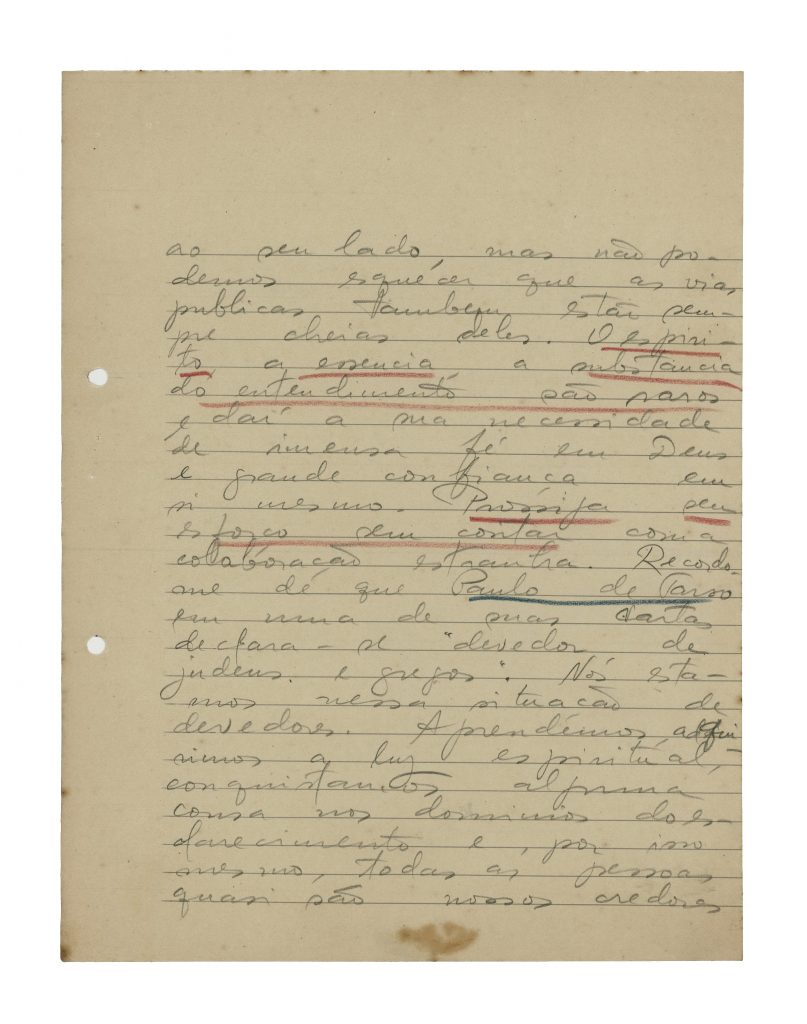 ao seu lado, mas não po-
demos esquécer que as vias
publicas tambem estão sem-
pre cheias deles. O espiri-
to, a essencia, a substancia
do entendimento são raros
e daí a sua necessidade
de imensa fé em Deus
e grande confiança em
si mesmo. Prossija seu
esforço sem contar com a
colaboração estranha. Recordo-
me de que Paulo de Tarso
em uma de suas cartas
declara-se "devedor de
judeus e gregos". Nós esta-
mos nessa situação de
devedores. Aprendémos, adqui
rimos a luz espiritual,
conquistamos alguma
cousa nos dominios do es-
clarecimento e, por isso
mesmo, todas as pessoas
quasi são nossos credores